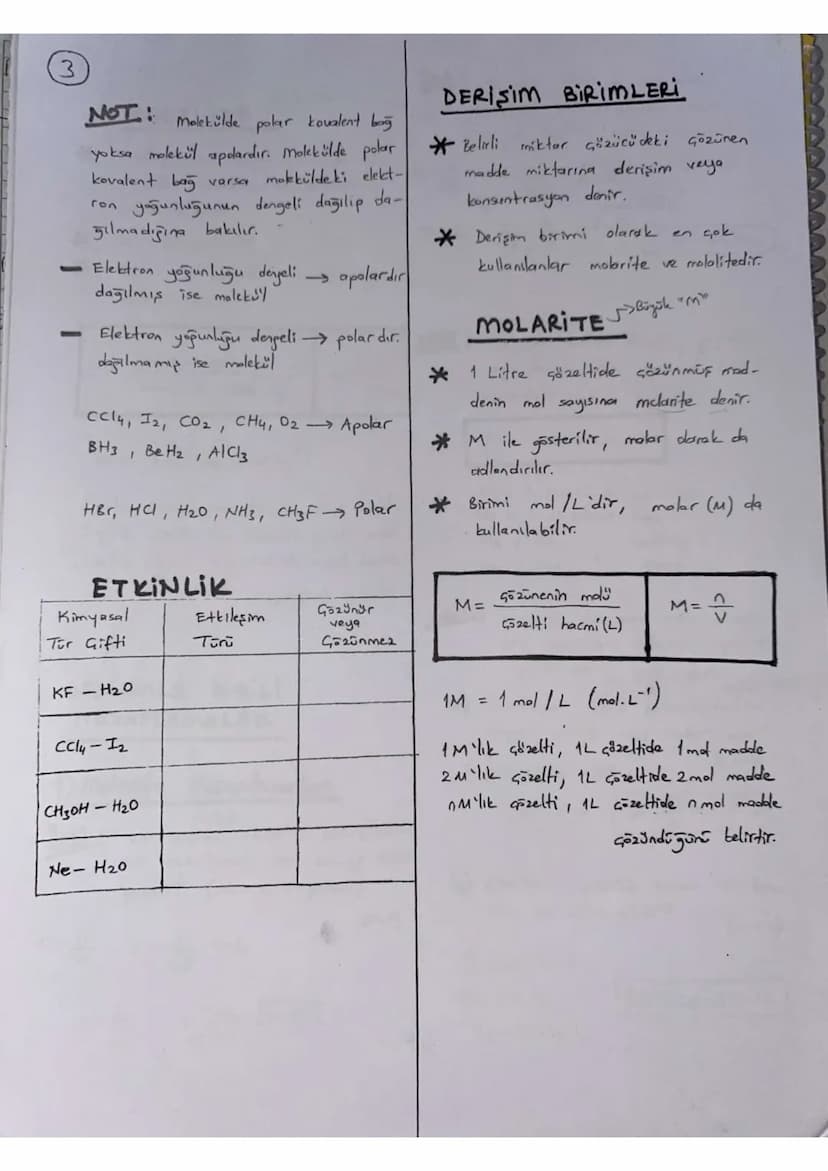 3
NOT: Molekülde polar kovalent bağ
yoksa molekül apolardır. Molekülde polar
kovalent bağ varsa moleküldeki elekt-
ron yoğunluğunun dengeli dağılıp da-
ğılmadığına bakılır.
— Elektron yoğunluğu dengeli → apolardır
dağılmış ise molekül
— Elektron yoğunluğu dengeli → polardır.
dağılmamış ise molekül
CCl4, I2, CO2, CH4, O2 → Apolar
BH3, BeH2, AlCl3
HBr, HCl, H2O, NH3, CH3F → Polar
ETKİNLİK
Kimyasal Tür Çifti
Etkileşim Türü
Çözünür veya Çözünmez
KF – H2O
CCl4 – I2
CH3OH – H2O
Ne – H2O
DERİŞİM BİRİMLERİ
* Belirli miktar çözücüdeki çözünen
madde miktarına derişim veya
konsentrasyon denir.
* Derişim birimi olarak en çok
kullanılanlar molarite ve molalitedir.
MOLARİTE → Büyük "M"
* 1 Litre çözeltide çözünmüş mad-
denin mol sayısına molarite denir.
* M ile gösterilir, molar olarak da
adlandırılır.
* Birimi mol/L'dir, molar (M) da
kullanılabilir.
M = Çözünenin molü / Çözelti hacmi(L)
M = n / V
1M = 1 mol/L (mol.L⁻¹)
1M'lık çözelti, 1L çözeltide 1mol madde
2M'lık çözelti, 1L çözeltide 2mol madde
nM'lık çözelti, 1L çözeltide n mol madde
çözündüğünü belirtir.